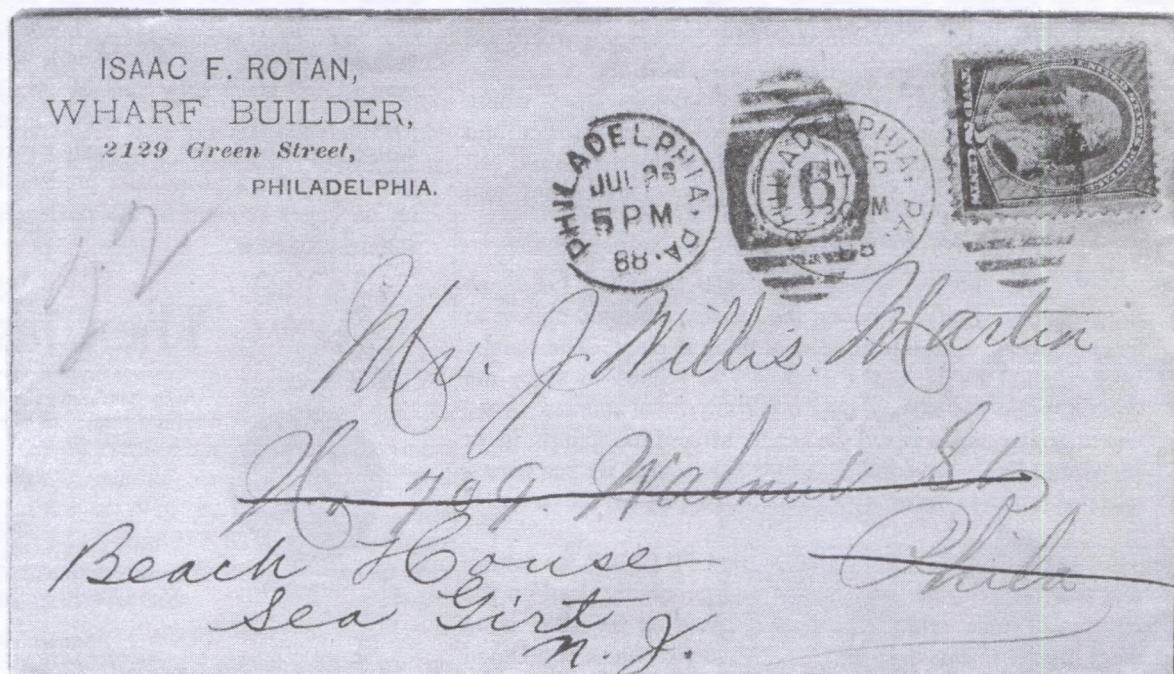 ISAAC F. ROTAN,
WHARF BUILDER,
2129 Green Street,
PHILADELPHIA.
PHILADELPHIA, PA.
JUL 26
5 PM
88.
PHILADELPHIA, PA.
6
Mr. J. Willis Martin
No 709 Walnut St
Phila
Beach House
Sea Girt
N. J.